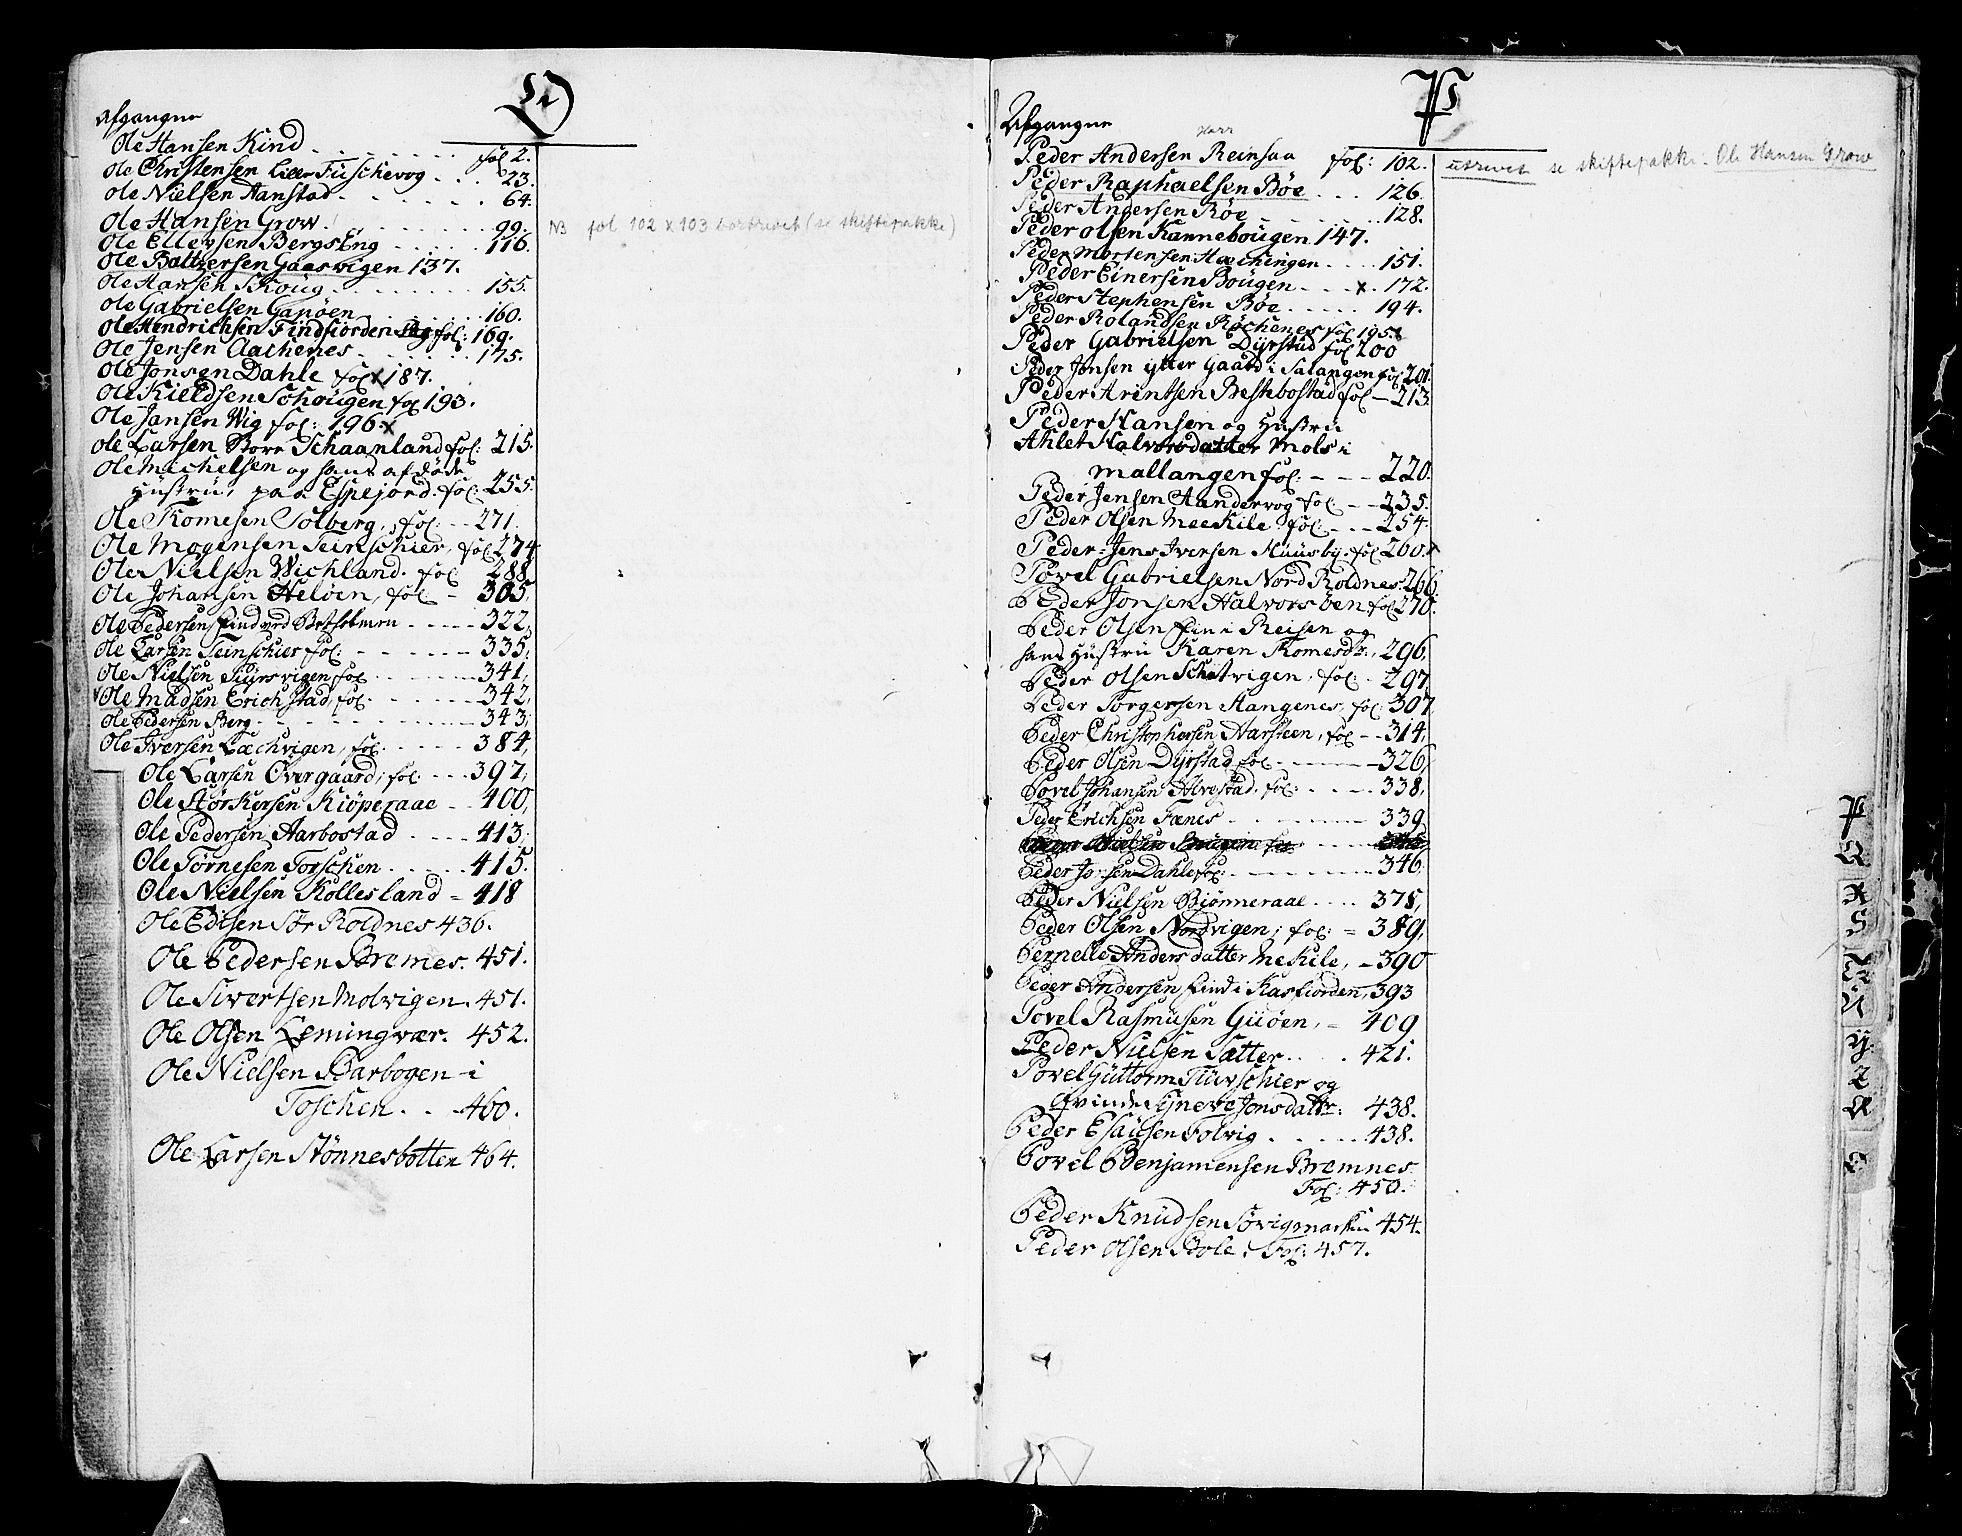 O
Afgangne
Ole Hansen Kind . . . . . . . fol 2.
Ole Christensen Lille Fuschevog . . . 23.
Ole Nielsen Aanstad . . . . . . . 64.
Ole Hansen Grow . . . . . . . 99.
NB fol 102 x 103 bortrevet (se skiftepakke)
Ole Ellevsen BergsEng . . . . . 116.
Ole Baltzersen Gaasvigen 137.
Ole Hansen Skoug . . . . . . . 155.
Ole Gabrielsen Ganöen . . . . . . 160.
Ole Hendrichsen Findfiorden fol: 169.
Ole Jensen Aachenes . . . . . . . 175.
Ole Jonsen Dahle fol x 187.
Ole Kieldsen Schougen fol 193.
Ole Jansen Wig fol: 196 x
Ole Larsen Store Schaanland fol: 215.
Ole Michelsen og hans afdöde
Hustru, paa Espejord fol: 255.
Ole Tomesen Solberg, fol: - - 271.
Ole Mogensen Teinschier, fol 274
Ole Nielsen Wichland. fol 288.
Ole Johansen Helöen, fol - 305,
Ole Pedersen find ved Botholmen - - - - - 322,
Ole Larsen Teinschier fol: - - - - - - 335,
Ole Nielsen fol - - - - - - 341,
Ole Madsen Erichstad, fol. - - - - - 342,
Ole Pedersen Berg - - - - - - - - - 343,
Ole Iversen Læchvigen, fol. - - - - - 384,
Ole Larsen Overgaard, fol. - - - 397,
Ole Störkersen Kiöperaae - - 400,
Ole Pedersen Aarbostad . - - - - 413,
Ole Törnesen Torschen . . . . . 415.
Ole Nielsen Kollesland - 418
Ole Edisen Sör Roldnes 436.
Ole Pedersen Bremes. 451.
Ole Sivertsen Molvigen. 451.
Ole Olsen Lemingvær. 452.
Ole Nielsen Barbogen i
Toschen . . - 460.
Ole Larsen Stönnesbotten 464.
P
Afgangne
Herr
Peder Andersen Reinsaa fol: 102.
utrevet se skiftepakke. Ole Hansen Grow
Peder Raphaelsen Böe . . . 126.
Peder Andersen Böe - - - - . . . 128.
Peder Olsen Kannebougen 147.
Peder Mortensen Hæchingen . . . . 151.
Peder Einersen Bougen - - - x. 172.
Peder Stephensen Böe . . . . . 194.
Peder Rolandsen Röchenes fol 195.
Peder Gabrielsen Dyrstad fol 200
Peder Jonsen ytter Gaard i Salangen fol 201.
Peder Arentsen Bestebostad fol - 213.
Peder Hansen og Hustru
Ahlet Halvorsdatter Mols i
Mallangen fol: - - - 220.
Peder Jensen Aandervog fol - - 235.
Peder Olsen Meekile fol: - - - 254.
Peder Jens Iversen Huusby. fol 260. x
Povel Gabrielsen Nord Roldnes 266
Peder Jonsen Halvorsöen fol 270.
Peder Olsen fin i Reisen og
hans Hustru Karen Tomesdtr., 296,
Peder Olsen Schatvigen, fol. - 297,
Peder Torgersen Stangenes, fol: 307,
Peder Christophersen Harsteen, fol - - 314,
Peder Olsen Dyrstad fol - - - - - 326,
Povel Johansen Alvestad. fol: - - - - 338,
Peder Erichsen Fænes - - - - - - - 339,
Peder Jonsen Dahle fol: - - - - - - - 346,
Peder Nielsen Biönneraae . . . . 378,
Peder Olsen Nordvigen; fol: = 389,
Pernelle Andersdatter Mekile, - 390
Peder Andersen find i Kasfiorden, 393
Povel Rasmusen Guöen, - 409
Peder Nielsen Sætter . . . . 421.
Povel Guttorm Tuvschier og
qvinde Sÿneve Jonsdattr: 438.
Peder Esaiesen Folvig . . . . . 438.
Povel Benjamensen Bremnes.
Fol: 450.
Peder Knudsen Sövigmarken 454.
Peder Olsen Bole, Fol: 457.
P
Q
R
S
T
U
Y
Z
Æ
Ö